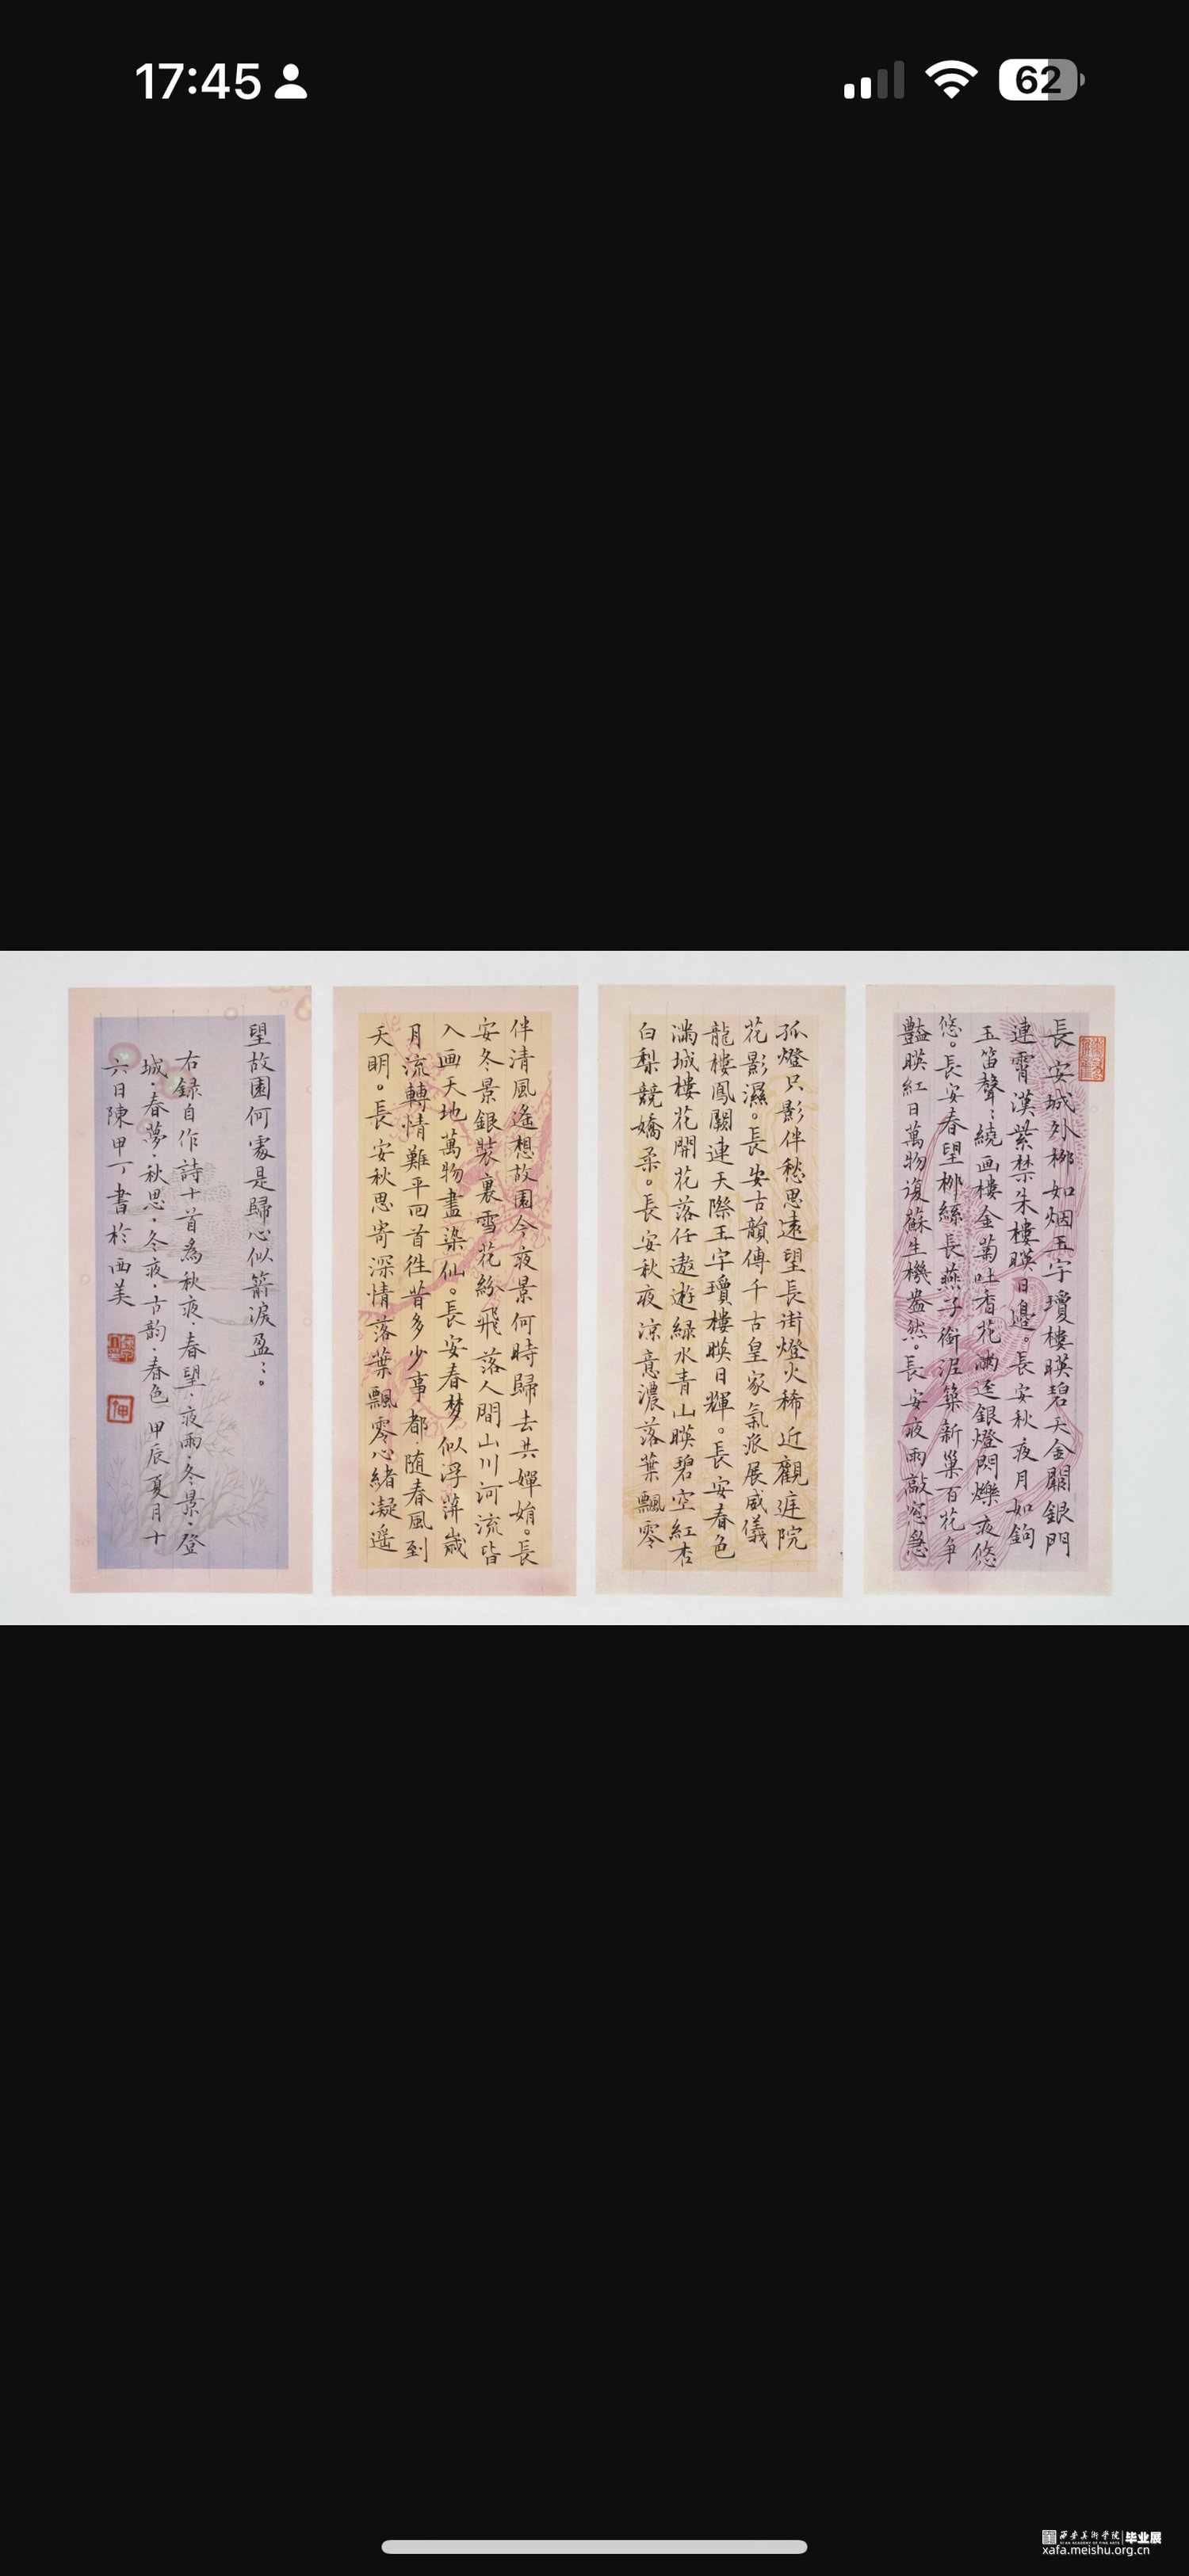 17:45
62
長安城外柳如烟玉宇瓊樓暎碧天金闕銀門
連霄漢紫禁朱樓暎日邊。長安秋夜月如鉤
玉笛聲〻繞画樓金菊吐香花滿逕銀燈閃爍夜悠
悠。長安春望柳絲長燕子銜泥築新巢百花爭
豔暎紅日萬物復蘇生機盎然。長安夜雨敲窓急
孤燈只影伴愁思遠望長街燈火稀近觀庭院
花影濕。長安古韻傳千古皇家氣派展威儀
龍樓鳳闕連天際玉宇瓊樓暎日輝。長安春色
滿城樓花開花落任遨遊綠水青山暎碧空紅杏
白梨競嬌柔。長安秋夜凉意濃落葉飄零
伴清風遙想故園今夜景何時歸去共嬋娟。長
安冬景銀裝裹雪花紛飛落人間山川河流皆
入画天地萬物盡染仙。長安春梦似浮萍歲
月流轉情難平回首徃昔多少事都随春風到
天明。長安秋思寄深情落葉飄零心緒凝遥
望故園何處是歸心似箭淚盈〻。
右録自作詩十首為秋夜·春望·夜雨·冬景·登
城·春夢·秋思·冬夜·古韵·春色 甲辰夏月十
六日陳甲丁書於西美
西安美術學院 毕业展
xafa.meishu.org.cn